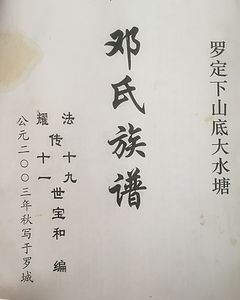 罗定下山底大水塘
邓氏族谱
法传十九世宝和编
耀十一
公元二〇〇三年秋写于罗城